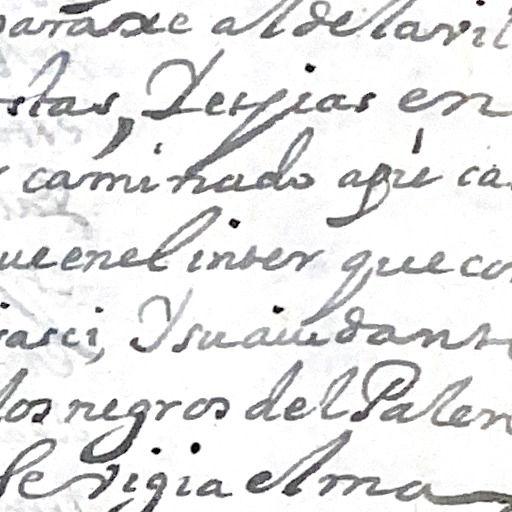 pararse al de la vil
stas, Yespias en
caminado a pie ca
ue en el inter que co
iasci, Y su aiudant
los negros del Palen
Se vigia el ma